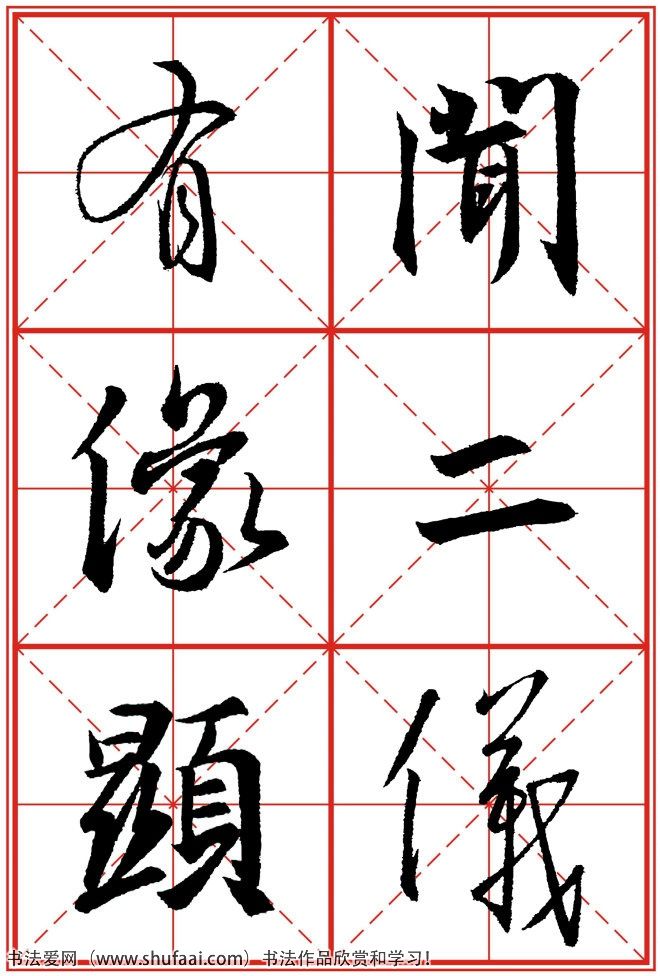 聞二儀
有像顯
书法爱网（www.shufaai.com）书法作品欣赏和学习！